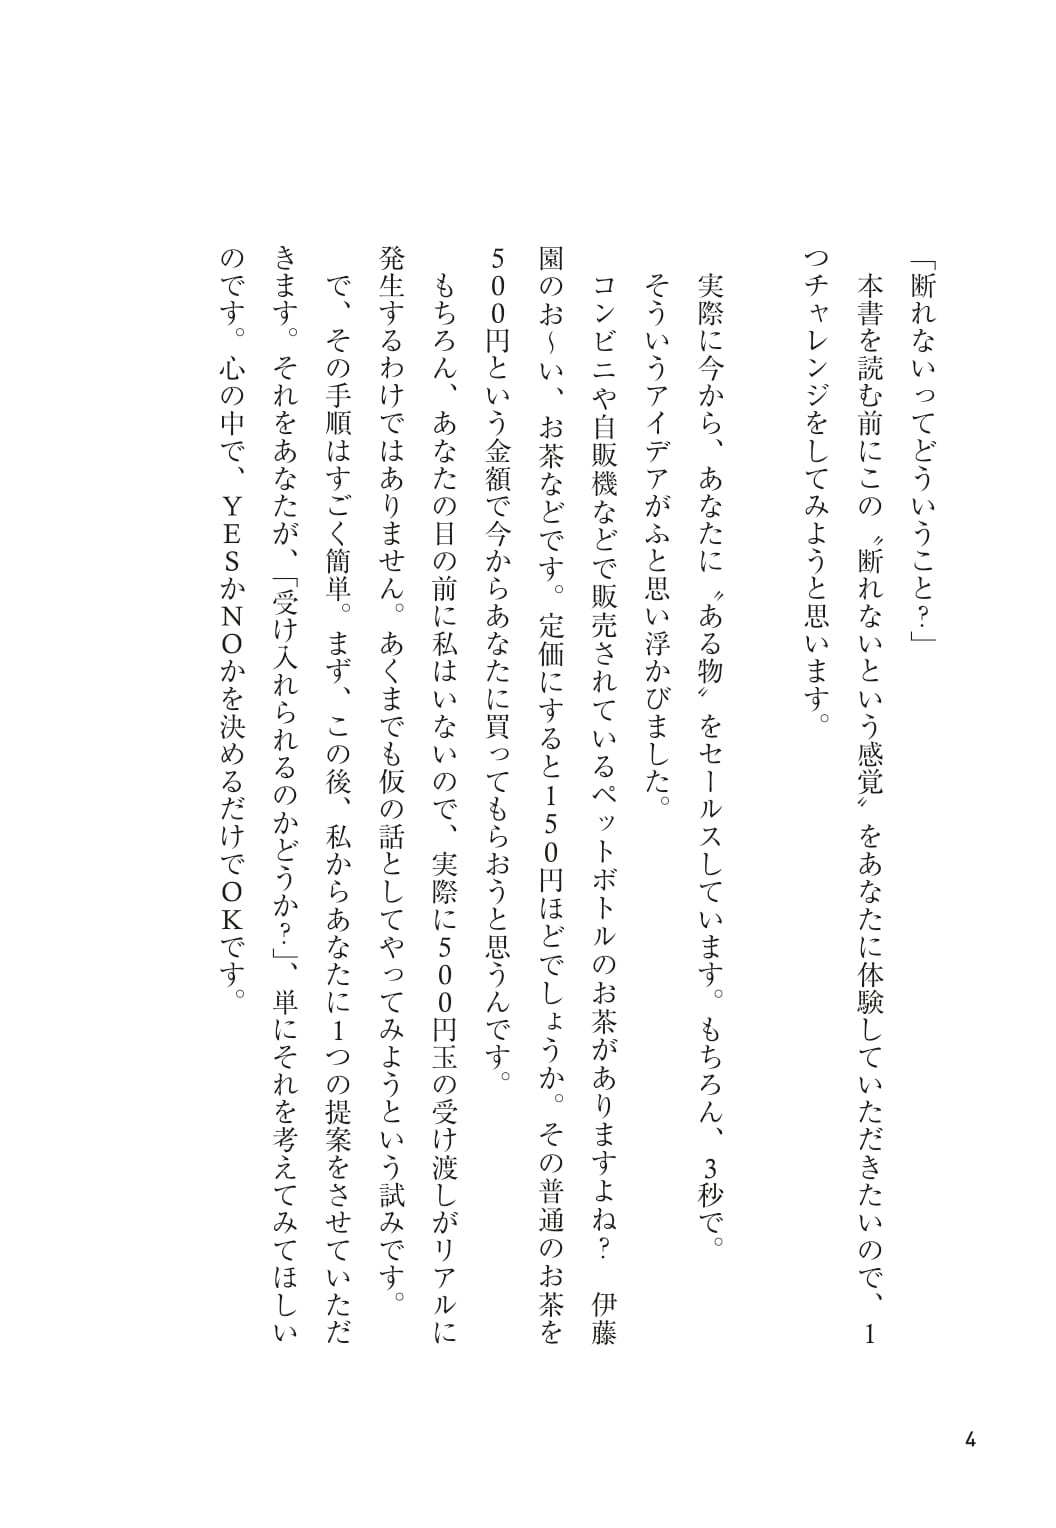 「断れないってどういうこと？」
　本書を読む前にこの〝断れないという感覚〟をあなたに体験していただきたいので、1
つチャレンジをしてみようと思います。
　実際に今から、あなたに〝ある物〟をセールスしています。もちろん、3秒で。
　そういうアイデアがふと思い浮かびました。
　コンビニや自販機などで販売されているペットボトルのお茶がありますよね？　伊藤
園のお～い、お茶などです。定価にすると150円ほどでしょうか。その普通のお茶を
500円という金額で今からあなたに買ってもらおうと思うんです。
　もちろん、あなたの目の前に私はいないので、実際に500円玉の受け渡しがリアルに
発生するわけではありません。あくまでも仮の話としてやってみようという試みです。
　で、その手順はすごく簡単。まず、この後、私からあなたに1つの提案をさせていただ
きます。それをあなたが、「受け入れられるのかどうか？」、単にそれを考えてみてほしい
のです。心の中で、YESかNOかを決めるだけでOKです。
4